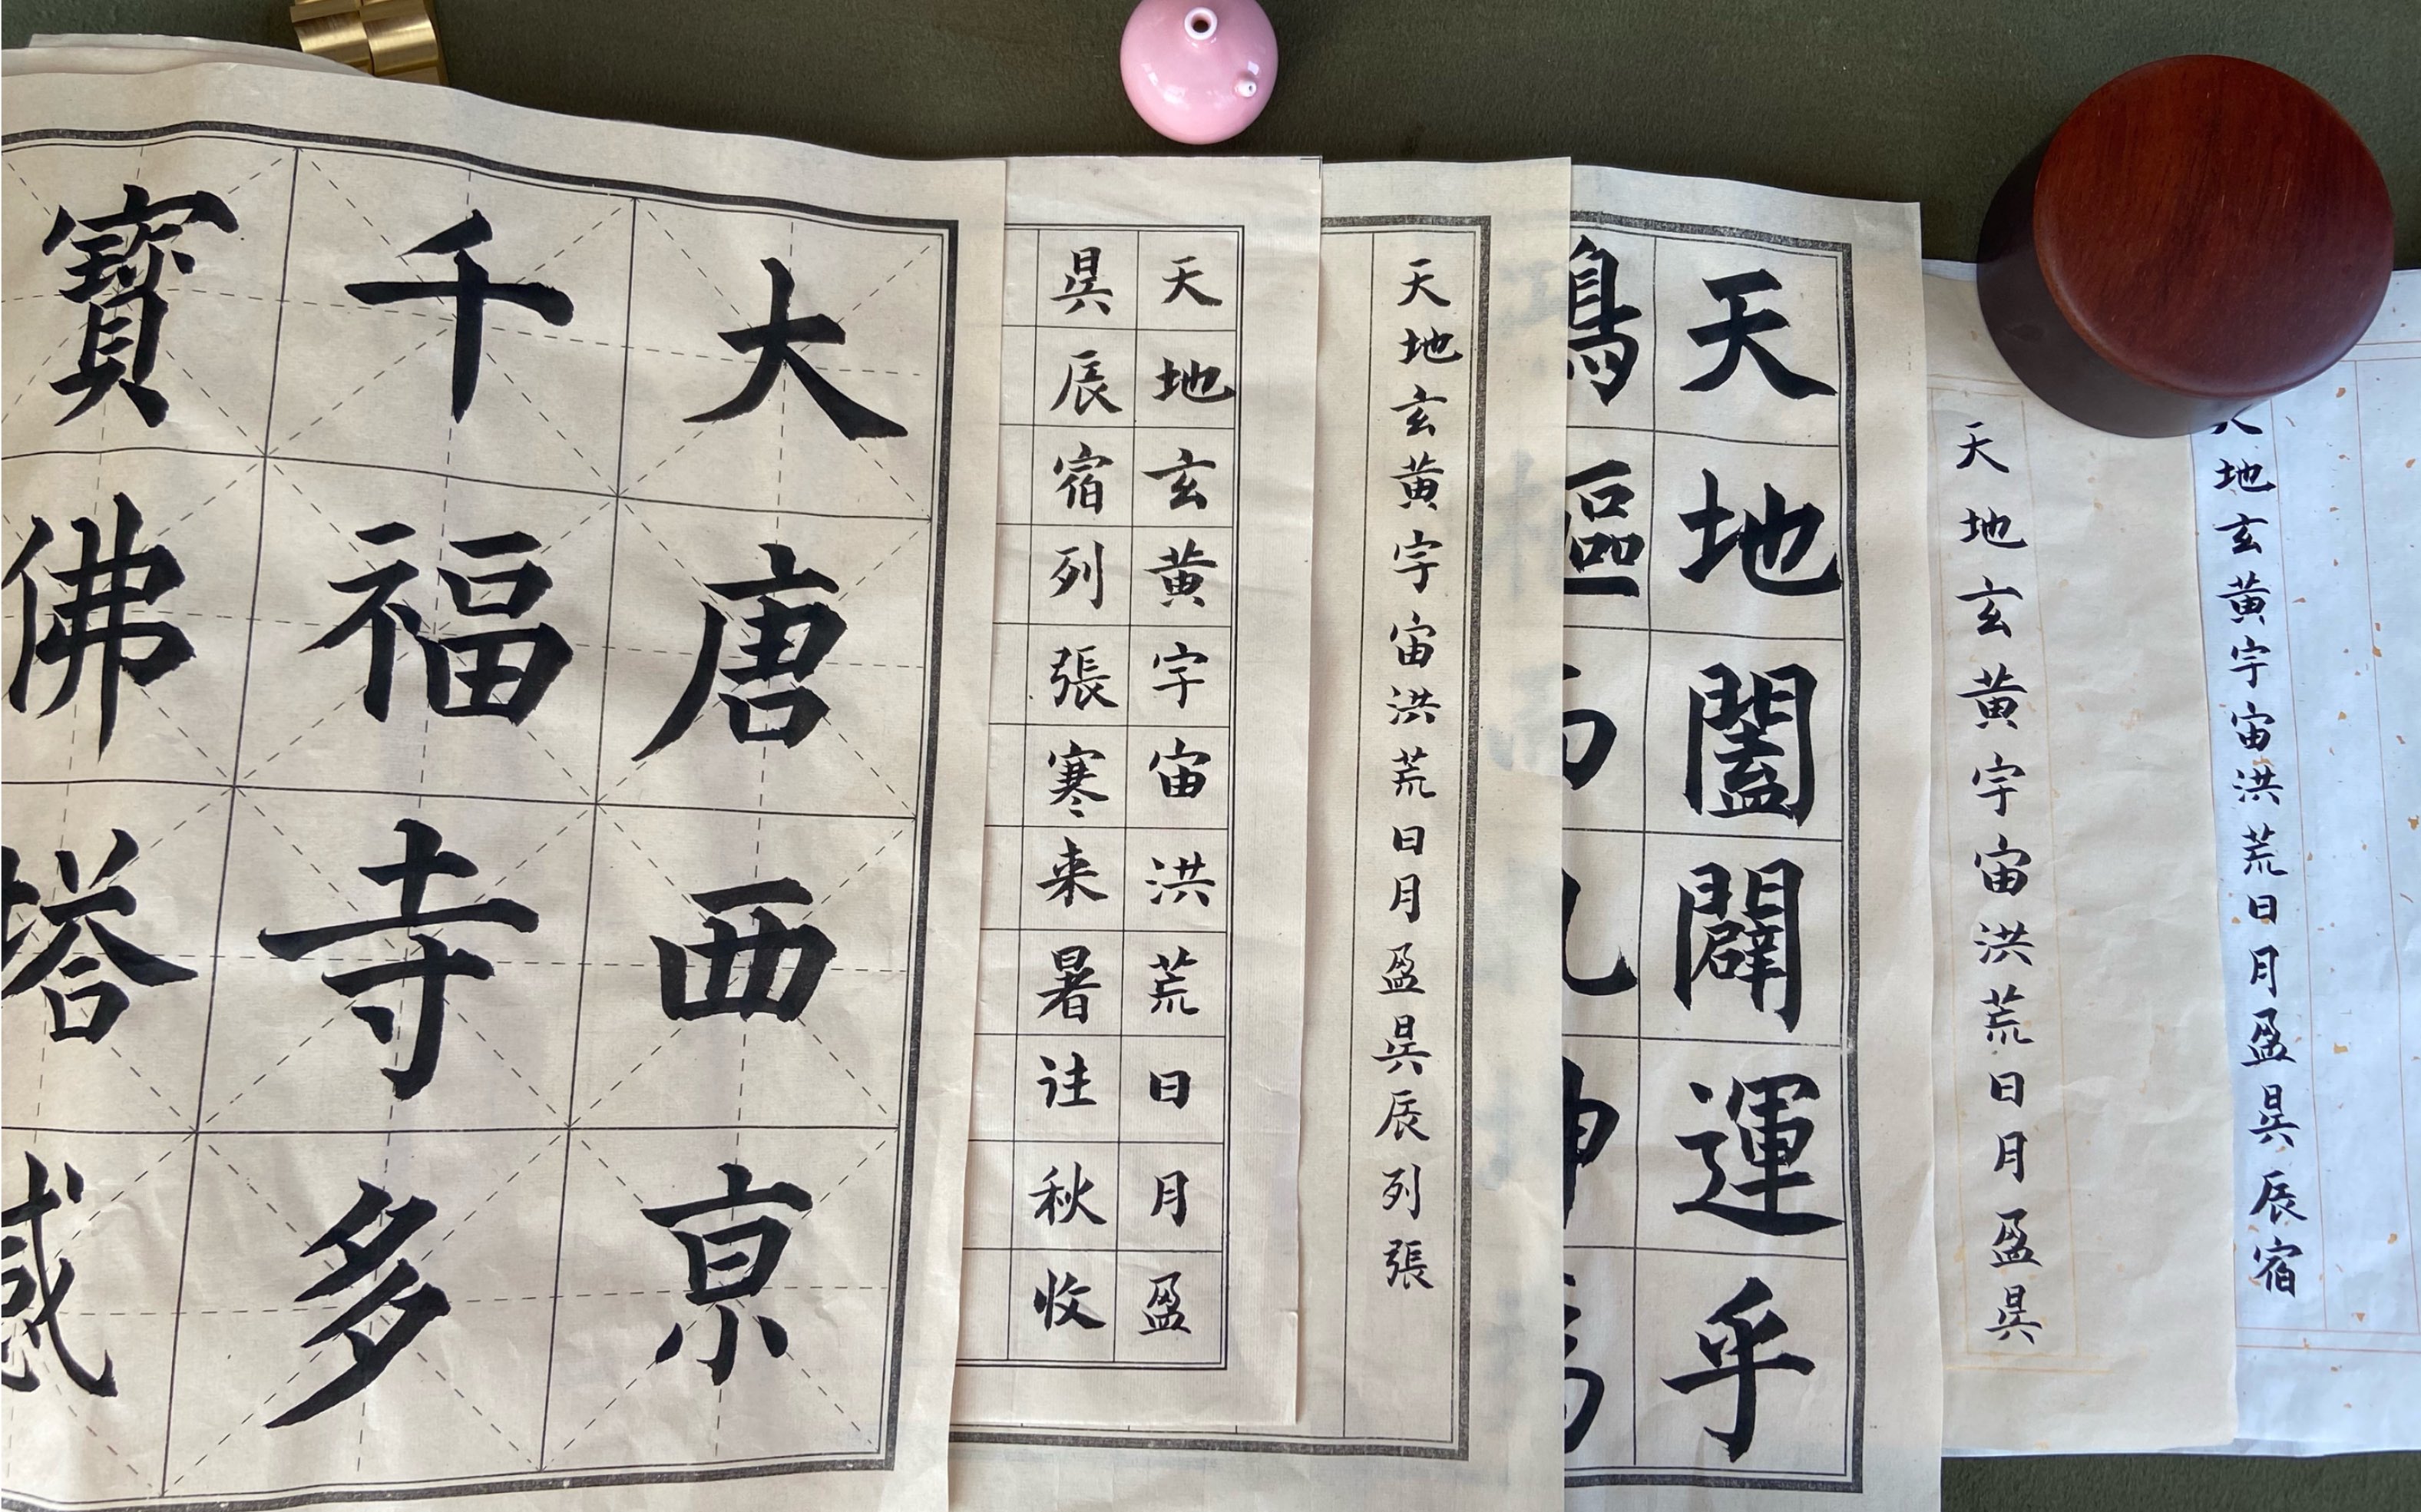 地玄黄宇宙洪荒日月盈昃辰宿
天地玄黄宇宙洪荒日月盈昃
天地闔闢運乎
天地玄黄宇宙洪荒日月盈昃辰列張
天地玄黄宇宙洪荒日月盈
昃辰宿列張寒来暑往秋收
大唐西亰
千福寺多
寶佛塔感